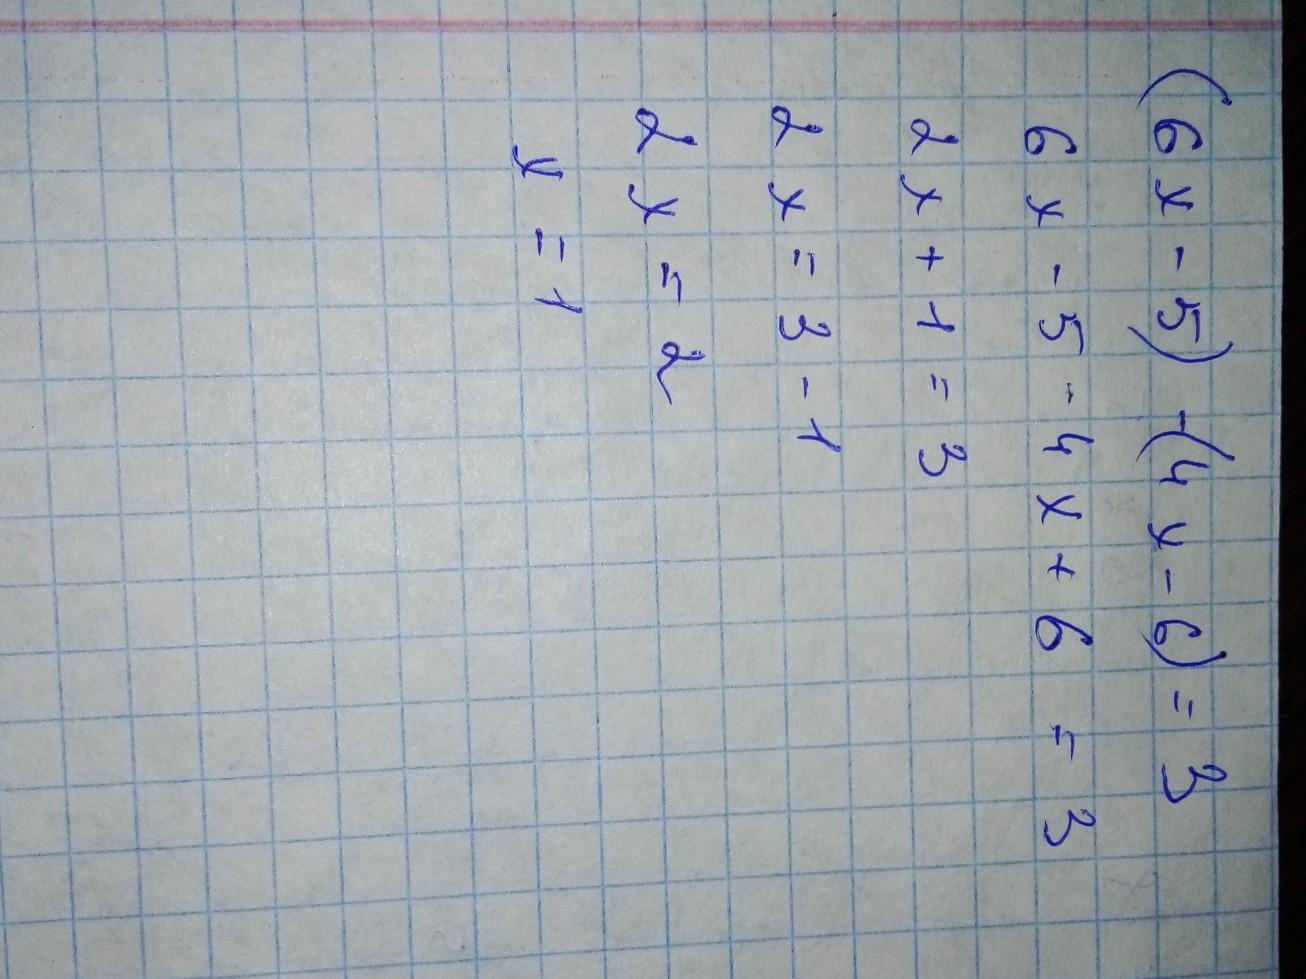 (6x - 5) - (4x - 6) = 3
6x - 5 - 4x + 6 = 3
2x + 1 = 3
2x = 3 - 1
2x = 2
x = 1